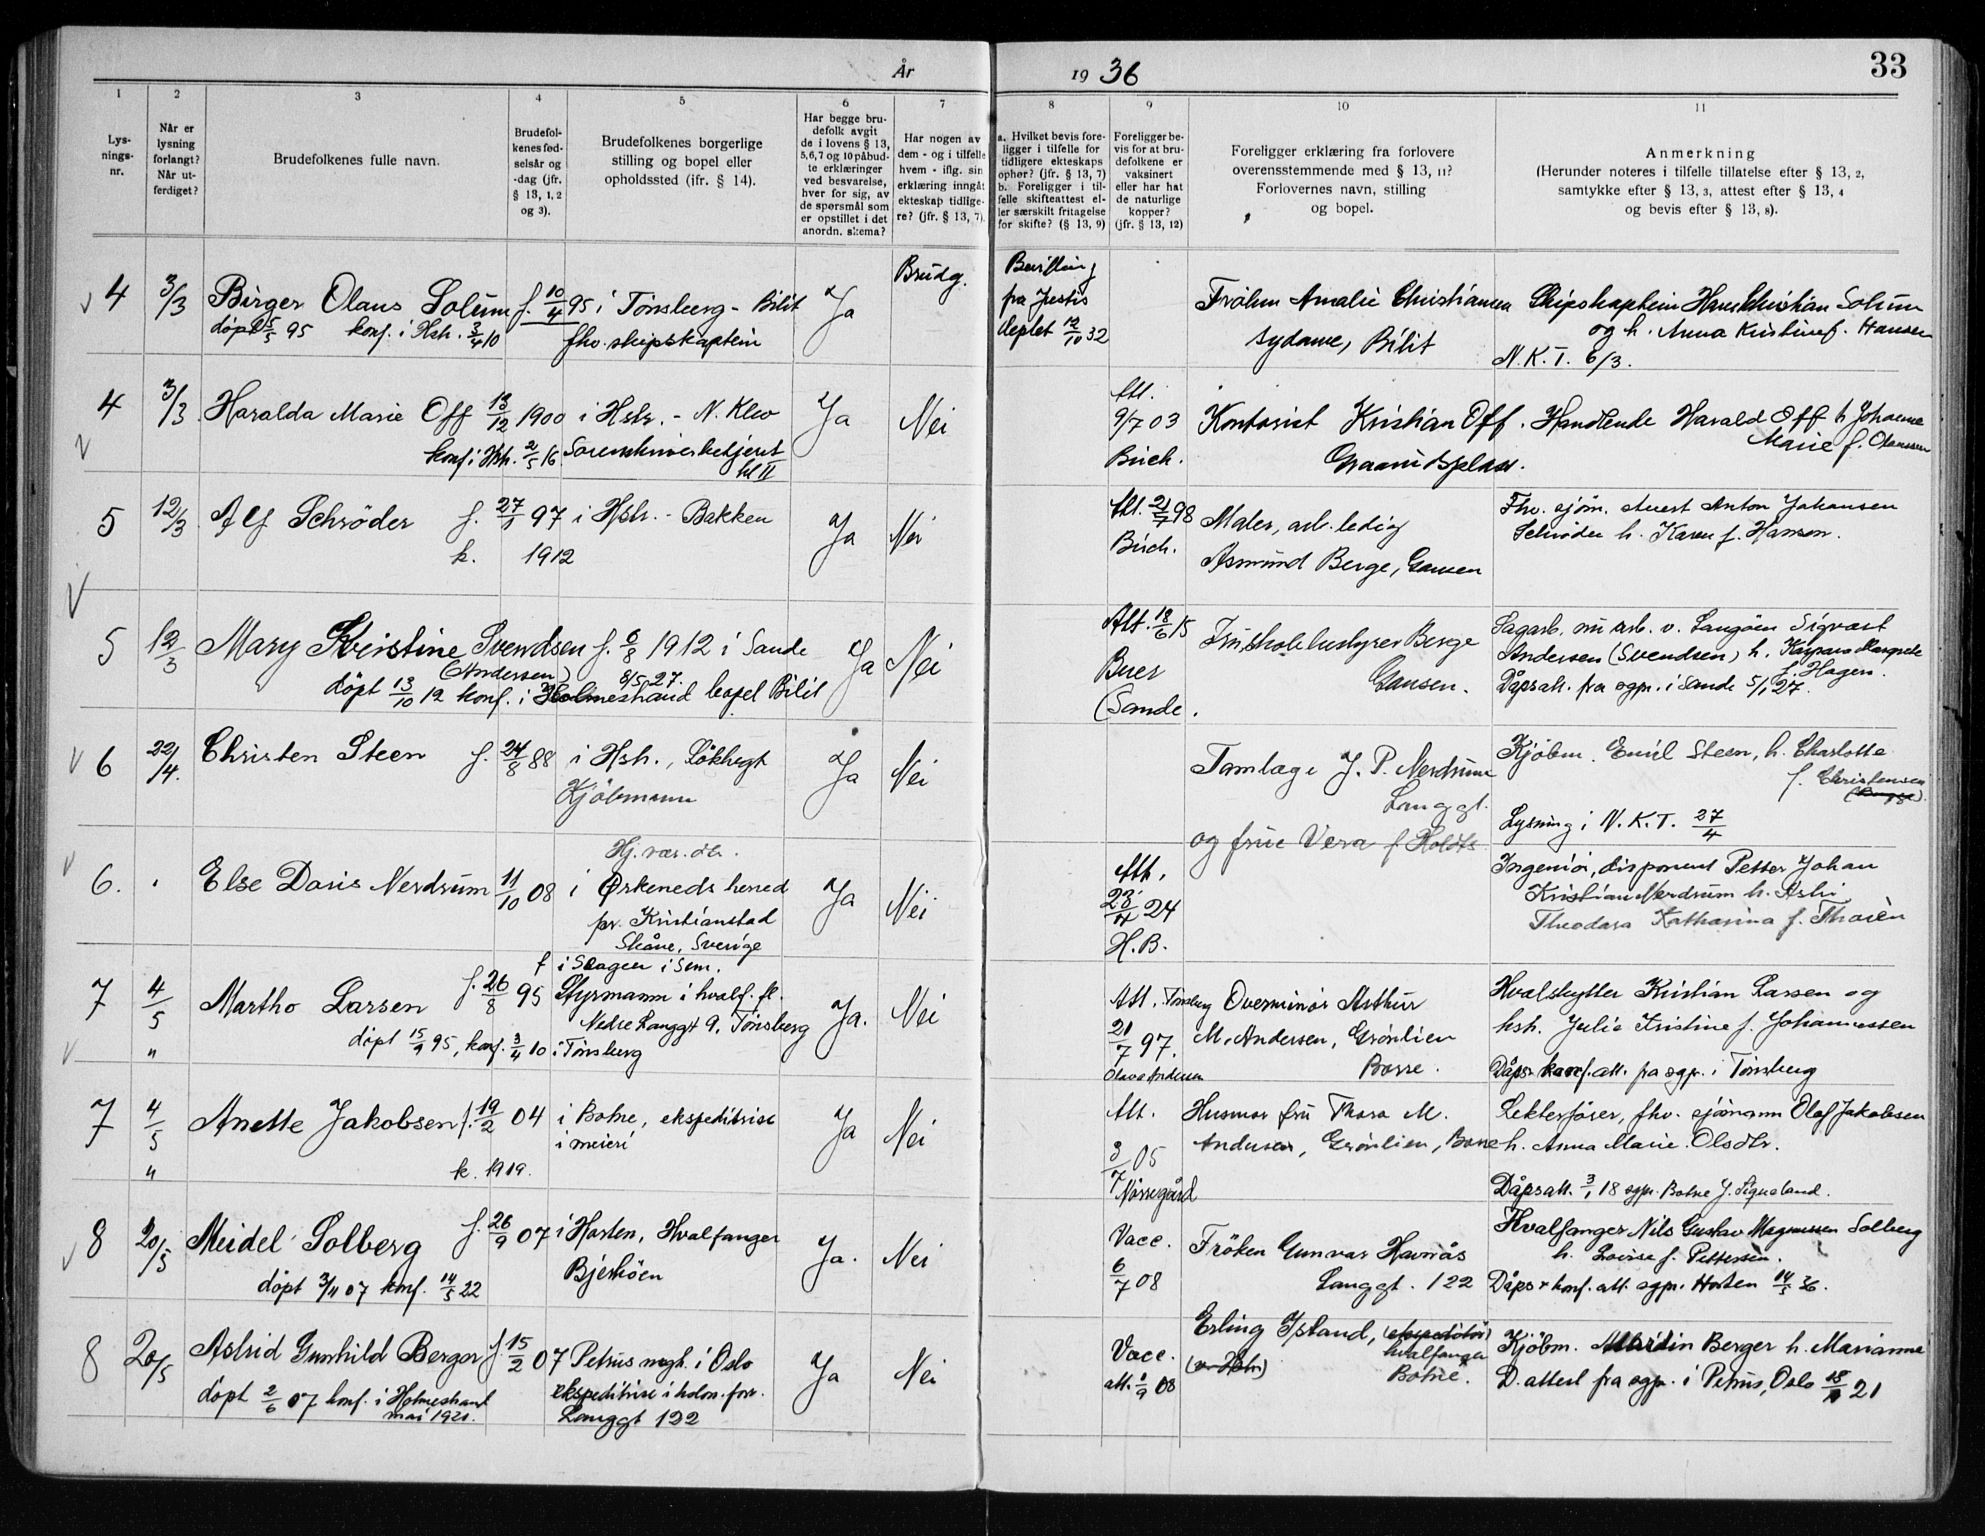 År 1936
33
1
2
3
4
5
6
7
8
9
10
11
Lys-
nings-
nr.
Når er
lysning
forlangt?
Når ut-
ferdiget?
Brudefolkenes fulle navn.
Brudefol-
kenes fød-
selsår og
-dag (jfr.
§ 13, 1, 2
og 3).
Brudefolkenes borgerlige
stilling og bopel eller
opholdssted (ifr. § 14).
Har begge bru-
defolk avgit
de i lovens § 13,
5,6,7 og 10 påbud-
te erklæringer
ved besvarelse,
hver for sig, av
de spørsmål som
er opstillet i det
anordn. skema?
Har nogen av
dem - og i tilfelle
hvem - iflg. sin
erklæring inngåt
ekteskap tidlige-
re? (jfr. § 13, 7).
a. Hvilket bevis fore-
ligger i tilfelle for
tidligere ekteskaps
ophør? (jfr. § 13, 7)
b. Foreligger i til-
felle skifteattest el-
ler særskilt fritagelse
for skifte? (§ 13, 9)
Foreligger be-
vis for at bru-
defolkene er
vaksinert
eller har hat
de naturlige
kopper?
(jfr. § 13, 12)
Foreligger erklæring fra forlovere
overensstemmende med § 13, 11?
Forlovernes navn, stilling
og bopel.
Anmerkning
(Herunder noteres i tilfelle tillatelse efter § 13, 2,
samtykke efter § 13, 3, attest efter § 13, 4
og bevis efter § 13, 8).
4 3/3 Birger Olaus Solum f. 10/4 95 i Tønsberg - Bilit Ja Brudg.
døpt 5/5 95 konf. i Hsh. 3/4 10 fhv. skipskaptein
Bevilling
fra Justis
deptet 12/10 32
Frøken Amalie Christiansen
sydame, Bilit
Skipskaptein Hans Christian Solum
og h. Anna Kristine f. Hansen
N. K. T. 6/3.
4 3/3 Haralda Marie Off 13/12 1900 i Hstr. - N. Klev Ja Nei
konf. i Hsh. 2/5 16
Att.
9/7 03
Buch.
Kontorist Kristian Off.
Handlende Harald Off h. Johanne
Marie f. Olaussen
5 12/3 Alf Schrøder f. 27/1 97 i Hstr. - Bakken Ja Nei
k. 1912
Att. 21/7 98
Buch.
Maler, arb. ledig
Asmund Berge, Gausen
Fhv. sjøm. Anert Anton Johansen
Schrøder h. Karen f. Hansen.
5 12/3 Mary Kristine Svendsen f. 6/8 1912 i Sande Ja Nei
(Andersen) 8/5 27.
døpt 13/10 12 konf. i Holmestrand bopel Bilit
Att. 18/6 15
Buer
(Sande.
Berge
Gausen.
Sagarb. nu arb. v. Langøen Sigvart
Andersen (Svendsen) h. Kaspara Margrete
f. Hagen.
Dåpsatt. fra sgpr. i Sande 5/1 27.
6 22/4. Christen Steen f. 24/8 88 i Hsh., Løkkegt Ja Nei
Kjøbmann
Tannlæge J. P. Nerdrum
Langgt.
og frue Vera f. Holdts
Kjøbm. Emil Steen, h. Charlotte
f. Christensen
Lysning i N. K. T. 27/4
Hj. vær. dtr.
6. Else Doris Nerdrum 11/10 08 i Ørkeneds hered Ja Nei
pr. Kristianstad
Skåne, Sverige
Att.
23/4 24
H.B.
Ingeniør, disponent Petter Johan
Kristian Nerdrum h. Astri
Theodora Katharina f. Thorèn
f. i Slagen i Sem.
7 4/5 Martho Larsen f. 26/8 95 Styrmann i hvalf. fl. Ja. Nei
Nedre Langgt 9, Tønsberg
" døpt 15/9 95, konf. 3/4 10 i Tønsberg
Att. Tønsberg
21/7 97.
Olava Andersen
Overminør Arthur
M. Andersen, Grønlien
Borre.
Hvalskytter Kristian Larsen og
hsh. Julie Kristine f. Johannessen
Dåps + konf. att. fra sgpr. i Tønsberg
7 4/5 Anette Jakobsen f. 19/2 04 i Botne, ekspeditrise Ja Nei
i meieri
" k. 1919.
Att.
3/7 05
Nørregård
Husmor fru Thora M.
Andersen, Grønlien, Borre
Lekterfører, fhv. sjømann Olaf Jakobsen
h. Anna Marie Olsdtr.
Dåpsatt. 3/1 18 sgpr. Botne J. Siqueland.
8 20/5 Meidel Solberg f. 26/9 07 i Horten, Hvalfanger Ja. Nei
Bjerkøen
døpt 3/11 07 konf. 14/5 22
Vacc.
6/7 08
Frøken Gunvor Havnås
Langgt. 122
Hvalfanger Nils Gustav Magnussen Solberg
h. Lovise f. Pettersen.
Dåps + konf. att. sgpr. Horten 14/5 36.
8 20/5 Astrid Gunhild Berger f. 15/2 07 Petrus mgh. i Oslo Ja Nei
ekspeditrise i kolon. forr.
døpt 2/6 07 konf. i Holmestrand Langgt 122
mai 1921.
Vacc.
att. 1/9 08
Erling Ystand, (ekspeditør)
hvalfanger
Botne.
Kjøbm. Berger h. Marianne
D. attest fra sgpr. i Petrus, Oslo 21